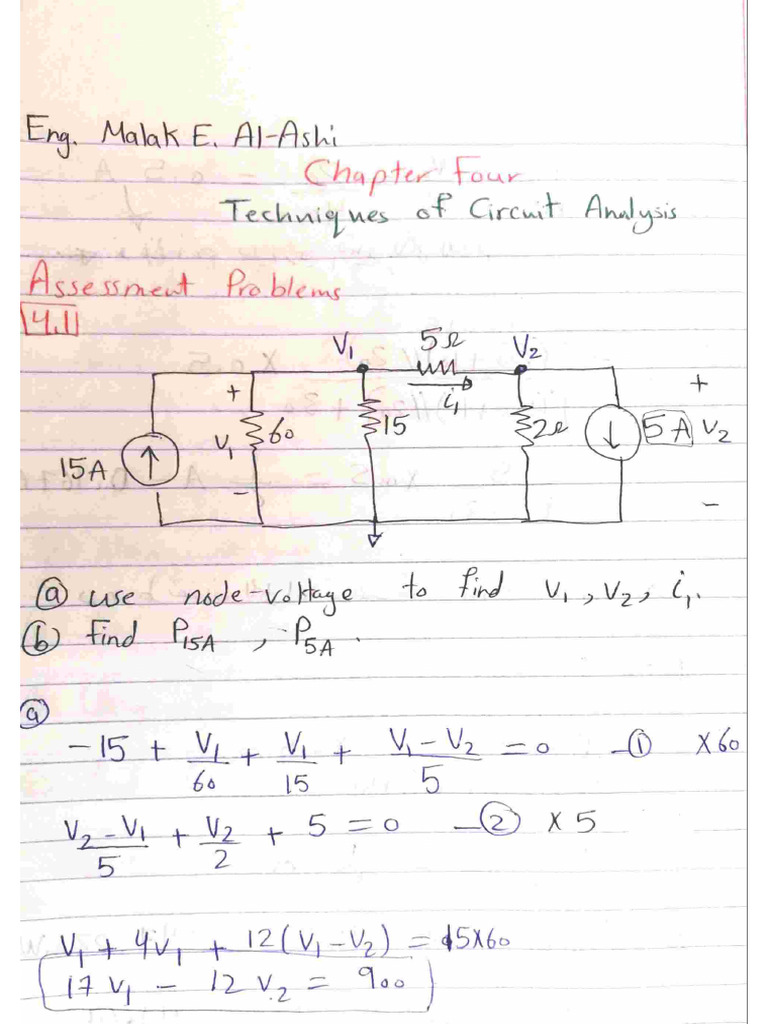 Eng. Malak E. Al-Ashi
Chapter Four
Techniques of Circuit Analysis
Assessment Problems
4.1
V1 5Ω V2
+ i1 +
15A V1 60 15 2Ω 5A V2
- -
ⓐ use node-voltage to find V1, V2, i1.
ⓑ find P15A, P5A.
ⓐ
-15 + V1/60 + V1/15 + (V1-V2)/5 = 0 -① ×60
(V2-V1)/5 + V2/2 + 5 = 0 -② ×5
V1 + 4V1 + 12(V1-V2) = 15×60
17V1 - 12V2 = 900